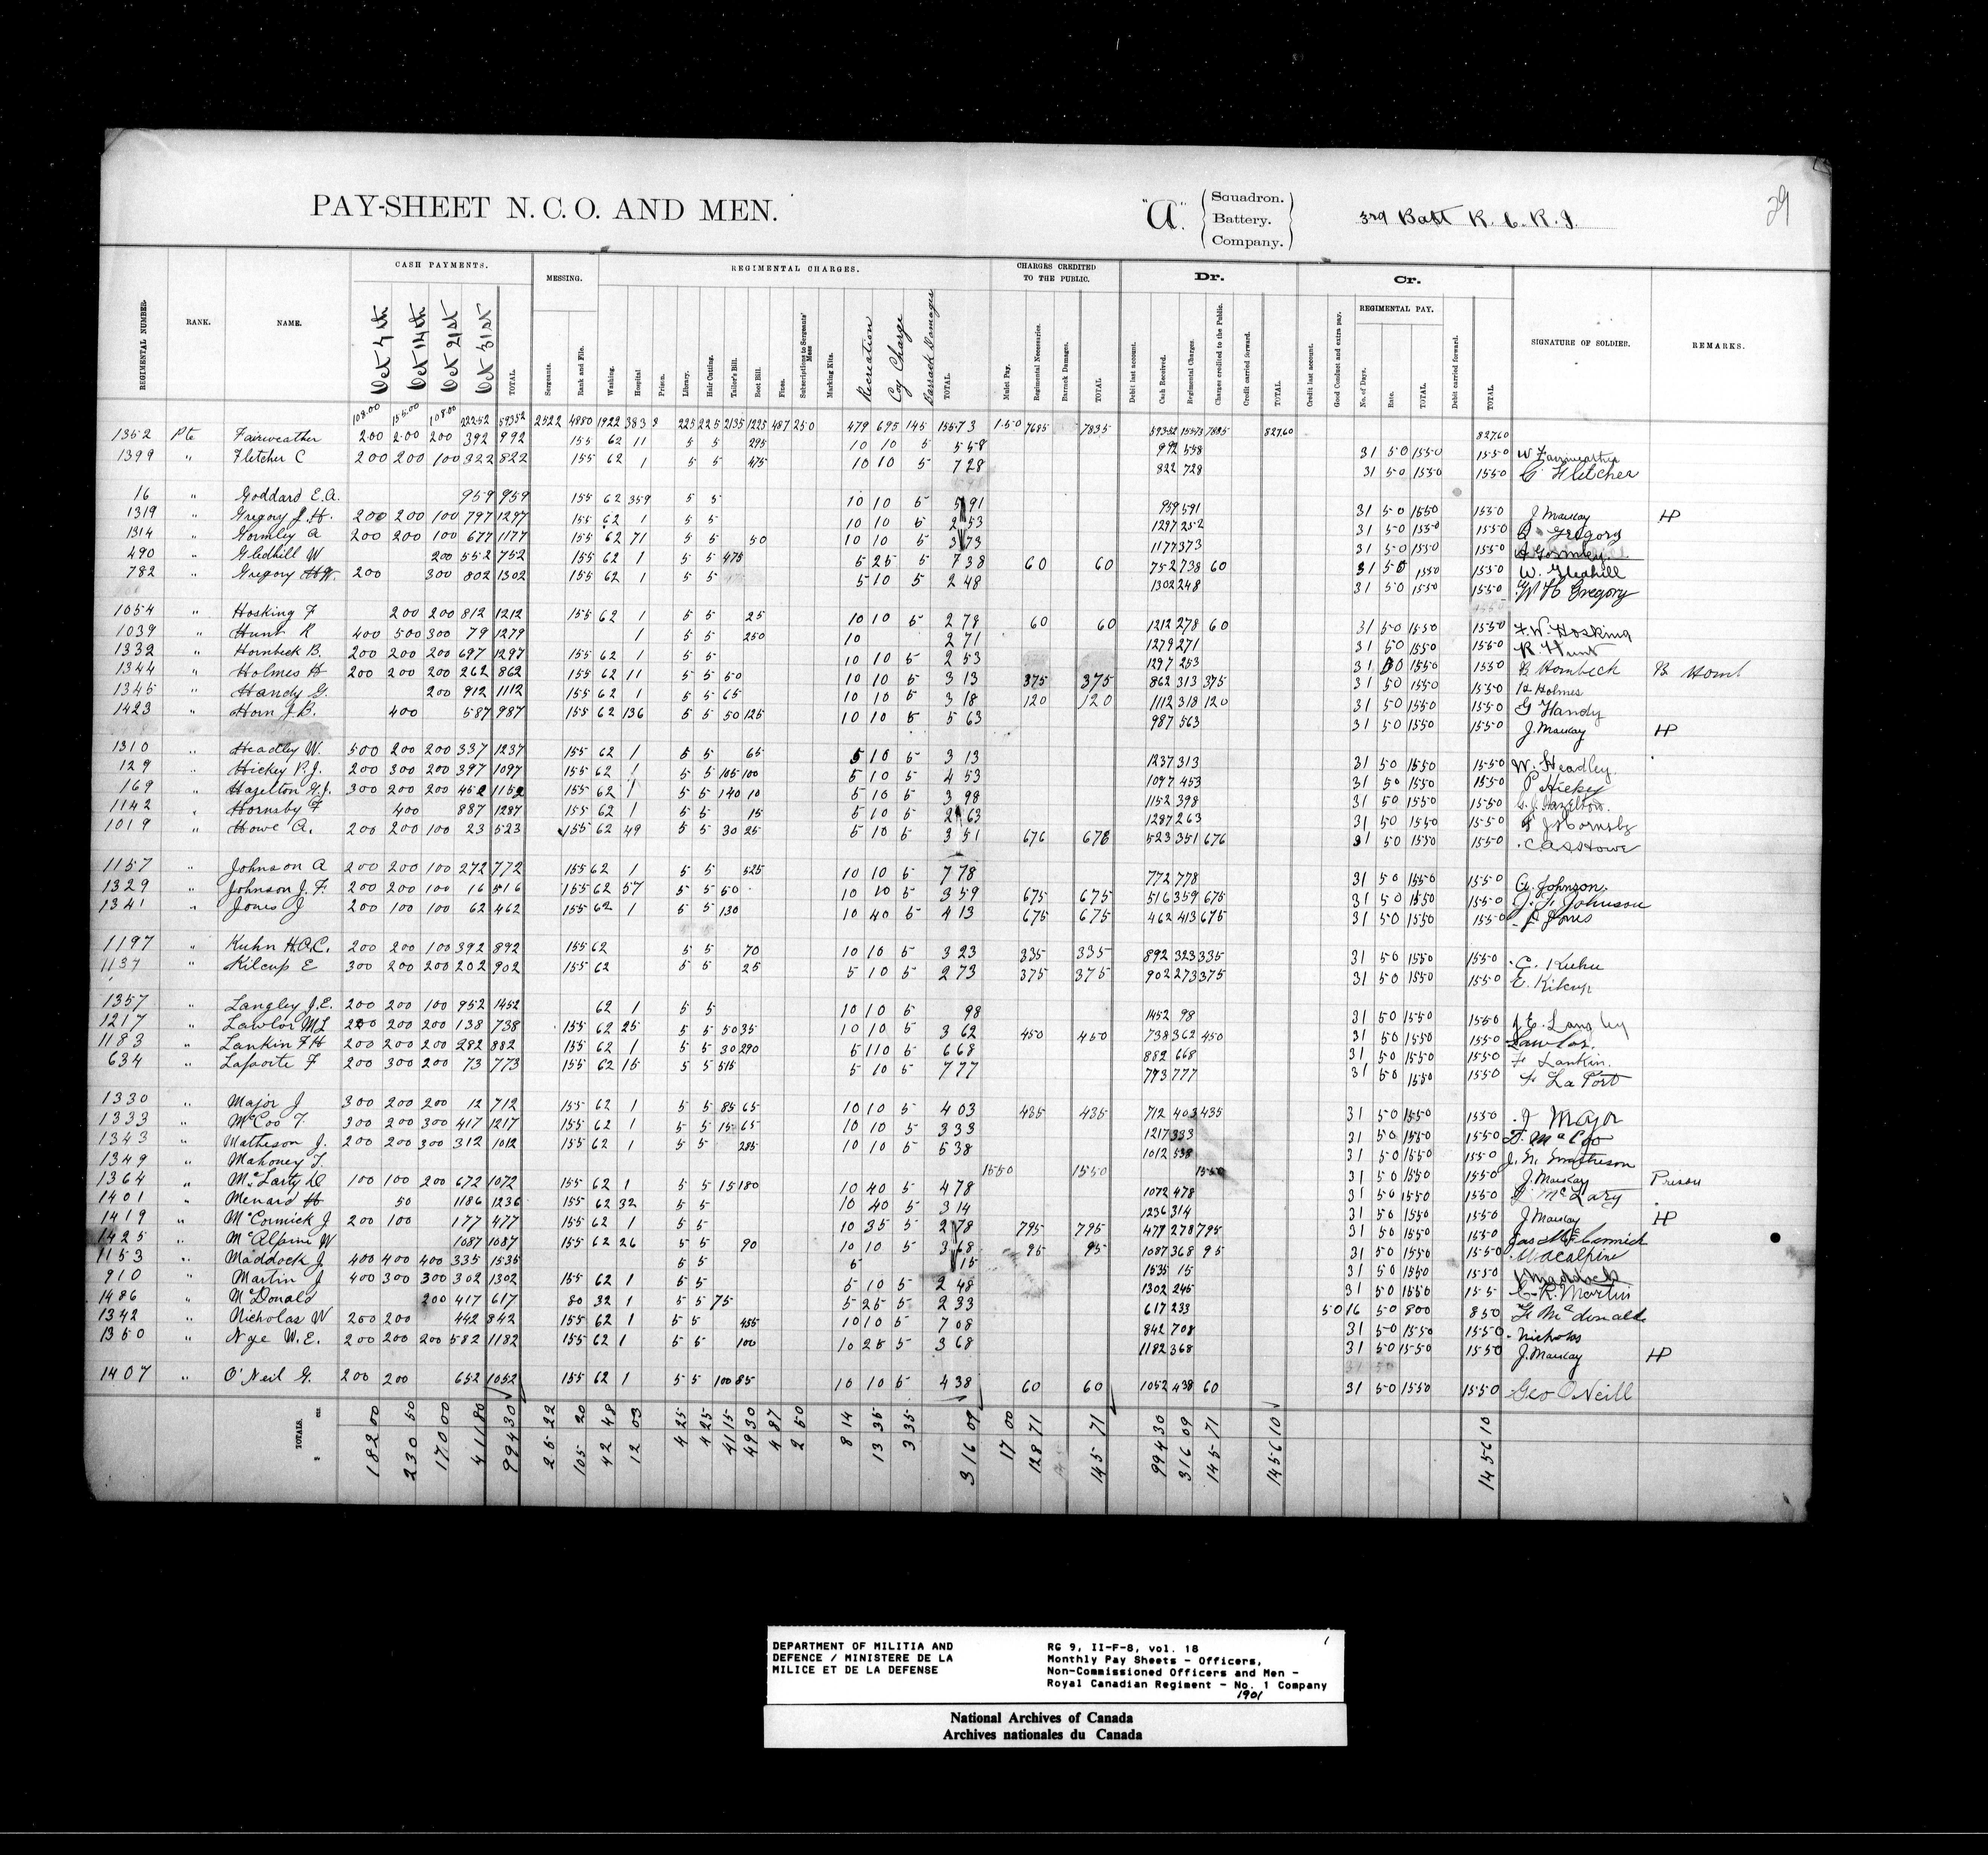 29
PAY-SHEET N. C. O. AND MEN.
"A" Squadron. Battery. Company.
3rd Batt R. C. R. I.
REGIMENTAL NUMBER. RANK. NAME. CASH PAYMENTS. MESSING. REGIMENTAL CHARGES. CHARGES CREDITED TO THE PUBLIC. Dr. Cr. SIGNATURE OF SOLDIER. REMARKS.
Oct 4th Oct 14th Oct 21st Oct 31st TOTAL. Sergeants. Rank and File. Washing. Hospital Prison. Library. Hair Cutting. Tailor's Bill. Boot Bill. Fines. Subscriptions to Sergeants' Mess Marking Kits. Recreation Coy Charge Barrack Damages TOTAL. Mulct Pay. Regimental Necessaries. Barrack Damages. TOTAL Debit last account. Cash Received. Regimental Charges. Charges credited to the Public. Credit carried forward. TOTAL. Credit last account. Good Conduct and extra pay. REGIMENTAL PAY. No. of Days. Rate. TOTAL. Debit carried forward. TOTAL.
108.00 155.00 108.00 22252 59352 2522 4880 1922 383 225 225 2135 1225 487 250 479 695 145 15573 1.50 7685 7835 59352 15573 7835 827.60 827.60
1352 Pte Fairweather 200 200 200 392 992 155 62 11 5 5 295 10 10 5 558 992 558 31 50 1550 1550 W Fairweather
1399 " Fletcher C 200 200 100 322 822 155 62 1 5 5 475 10 10 5 728 822 728 31 50 1550 1550 C Fletcher
16 " Goddard E.A. 959 959 155 62 359 5 5 10 10 5 591 959 591 31 50 1550 1550 J Mackay HP
1319 " Gregory J.H. 200 200 100 797 1297 155 62 1 5 5 10 10 5 253 1297 252 31 50 1550 1550 Gregory
1314 " Gormley A 200 200 100 677 1177 155 62 71 5 5 50 10 10 5 373 1177 373 31 50 1550 1550 A Gormley
490 " Gledhill W 200 552 752 155 62 1 5 5 475 5 25 5 738 60 60 752 738 60 31 50 1550 1550 W. Gledhill
782 " Gregory H.W. 200 300 802 1302 155 62 1 5 5 5 10 5 248 1302 248 31 50 1550 1550 W H Gregory
1054 " Hosking F 200 200 812 1212 155 62 1 5 5 25 10 10 5 278 60 60 1212 278 60 31 50 1550 1550 F. W. Hosking
1039 " Hunt R 400 500 300 79 1279 1 5 5 250 10 271 1279 271 31 50 1550 1550 R Hunt
1332 " Hornbeck B. 200 200 200 697 1297 155 62 1 5 5 10 10 5 253 1297 253 31 50 1550 1550 B Hornbeck B Hornb
1344 " Holmes H 200 200 200 262 862 155 62 11 5 5 50 10 10 5 313 375 375 862 313 375 31 50 1550 1550 H Holmes
1345 " Handy G. 200 912 1112 155 62 1 5 5 65 10 10 5 318 120 120 1112 318 120 31 50 1550 1550 G Handy
1423 " Horn J.B. 400 587 987 155 62 136 5 5 50 125 10 10 5 563 987 563 31 50 1550 1550 J. Mackay HP
1310 " Headley W. 500 200 200 337 1237 155 62 1 5 5 65 5 10 5 313 1237 313 31 50 1550 1550 W. Headley.
129 " Hickey P.J. 200 300 200 397 1097 155 62 1 5 5 105 100 5 10 5 453 1097 453 31 50 1550 1550 P Hickey
169 " Hazelton G.J. 300 200 200 452 1152 155 62 1 5 5 140 10 5 10 5 398 1152 398 31 50 1550 1550 G. J. Hazelton.
1142 " Hornsby F 400 887 1287 155 62 1 5 5 15 5 10 5 263 1287 263 31 50 1550 1550 F J Hornsby
1019 " Howe A. 200 200 100 23 523 155 62 49 5 5 30 25 5 10 5 351 676 676 523 351 676 31 50 1550 1550 Howe
1157 " Johnson A 200 200 100 272 772 155 62 1 5 5 525 10 10 5 778 772 778 31 50 1550 1550 A. Johnson.
1329 " Johnson J.F. 200 200 100 16 516 155 62 57 5 5 50 10 10 5 359 675 675 516 359 675 31 50 1550 1550 J. F. Johnson
1341 " Jones J 200 100 100 62 462 155 62 1 5 5 130 10 40 5 413 675 675 462 413 675 31 50 1550 1550 J Jones
1197 " Kuhn H.A.C. 200 200 100 392 892 155 62 5 5 70 10 10 5 323 335 335 892 323 335 31 50 1550 1550 C. Kuhn
1137 " Kilcup E 300 200 200 202 902 155 62 5 5 25 5 10 5 273 375 375 902 273 375 31 50 1550 1550 E. Kilcup
1357 " Langley J.E. 200 200 100 952 1452 62 1 5 5 10 10 5 98 1452 98 31 50 1550 1550 J E. Langley
1217 " Lawlor M L 200 200 200 138 738 155 62 25 5 5 50 35 10 10 5 362 450 450 738 362 450 31 50 1550 1550 Lawlor.
1183 " Lankin F H 200 200 200 282 882 155 62 1 5 5 30 290 5 110 5 668 882 668 31 50 1550 1550 F Lankin.
634 " Laporte F 200 300 200 73 773 155 62 15 5 5 515 5 10 5 777 773 777 31 50 1550 1550 F La Port
1330 " Major J 300 200 200 12 712 155 62 1 5 5 85 65 10 10 5 403 435 435 712 403 435 31 50 1550 1550 J Major
1333 " McCoo T. 300 200 300 417 1217 155 62 1 5 5 15 65 10 10 5 333 1217 333 31 50 1550 1550 T. McCoo
1343 " Matheson J. 200 200 300 312 1012 155 62 1 5 5 285 10 10 5 538 1012 538 31 50 1550 1550 J. N. Matheson
1349 " Mahoney T. 1550 1550 1550 31 50 1550 1550 J. Mackay Prison
1364 " McLarty D 100 100 200 672 1072 155 62 1 5 5 15 180 10 40 5 478 1072 478 31 50 1550 1550 D McLarty
1401 " Menard H 50 1186 1236 155 62 32 5 5 10 40 5 314 1236 314 31 50 1550 1550 J Mackay HP
1419 " McCormick J 200 100 177 477 155 62 1 5 5 10 35 5 278 795 795 477 278 795 31 50 1550 1550 Jas McCormick
1425 " McAlpine W 1087 1087 155 62 26 5 5 90 10 10 5 368 95 95 1087 368 95 31 50 1550 1550 W McAlpine
1153 " Maddock J 400 400 400 335 1535 5 5 5 15 1535 15 31 50 1550 1550 J Maddock
910 " Martin J 400 300 300 302 1302 155 62 1 5 5 5 10 5 248 1302 245 31 50 1550 155 C. R. Martin
1486 " McDonald 200 417 617 80 32 1 5 5 75 5 25 5 233 617 233 50 16 50 800 850 McDonald
1342 " Nicholas W 200 200 442 842 155 62 1 5 5 455 10 10 5 708 842 708 31 50 1550 1550 Nicholas
1350 " Nye W.E. 200 200 200 582 1182 155 62 1 5 5 100 10 25 5 368 1182 368 31 50 1550 1550 J. Mackay HP
1407 " O'Neil G. 200 200 652 1052 155 62 1 5 5 100 85 10 10 5 438 60 60 1052 438 60 31 50 1550 1550 Geo O'Neill
TOTALS. $ cts. 182 00 230 50 170 00 411 80 994 30 25 22 105 20 42 48 12 03 4 25 4 25 41 15 49 30 4 87 2 50 8 14 13 35 3 35 316 09 17 00 128 71 145 71 994 30 316 09 145 71 1456 10 1456 10
DEPARTMENT OF MILITIA AND
DEFENCE / MINISTERE DE LA
MILICE ET DE LA DEFENSE
RG 9, II-F-8, vol. 18
Monthly Pay Sheets - Officers,
Non-Commissioned Officers and Men -
Royal Canadian Regiment - No. 1 Company
1901
National Archives of Canada
Archives nationales du Canada